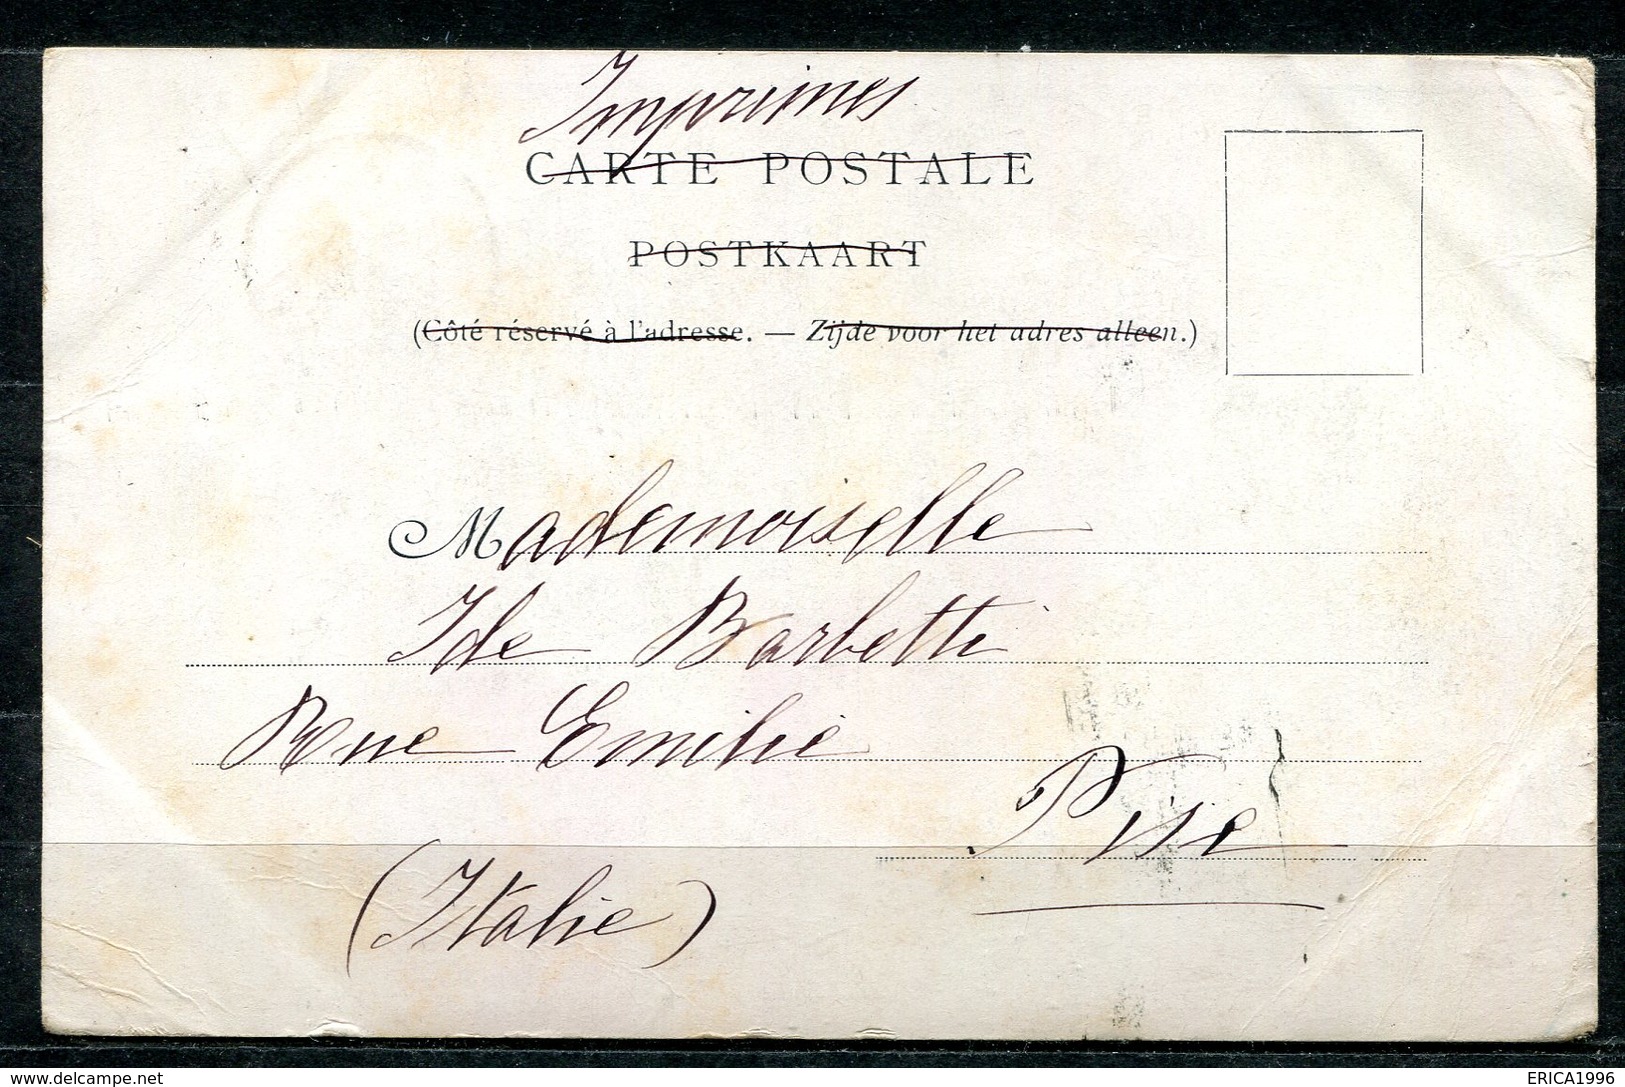 Imprimes
CARTE POSTALE
POSTKAART
(Côté réservé à l'adresse. — Zijde voor het adres alleen.)
Mademoiselle
Ide Barbetti
Rue Emilie
Pise
(Italie)
delcampe.net
ERICA1996